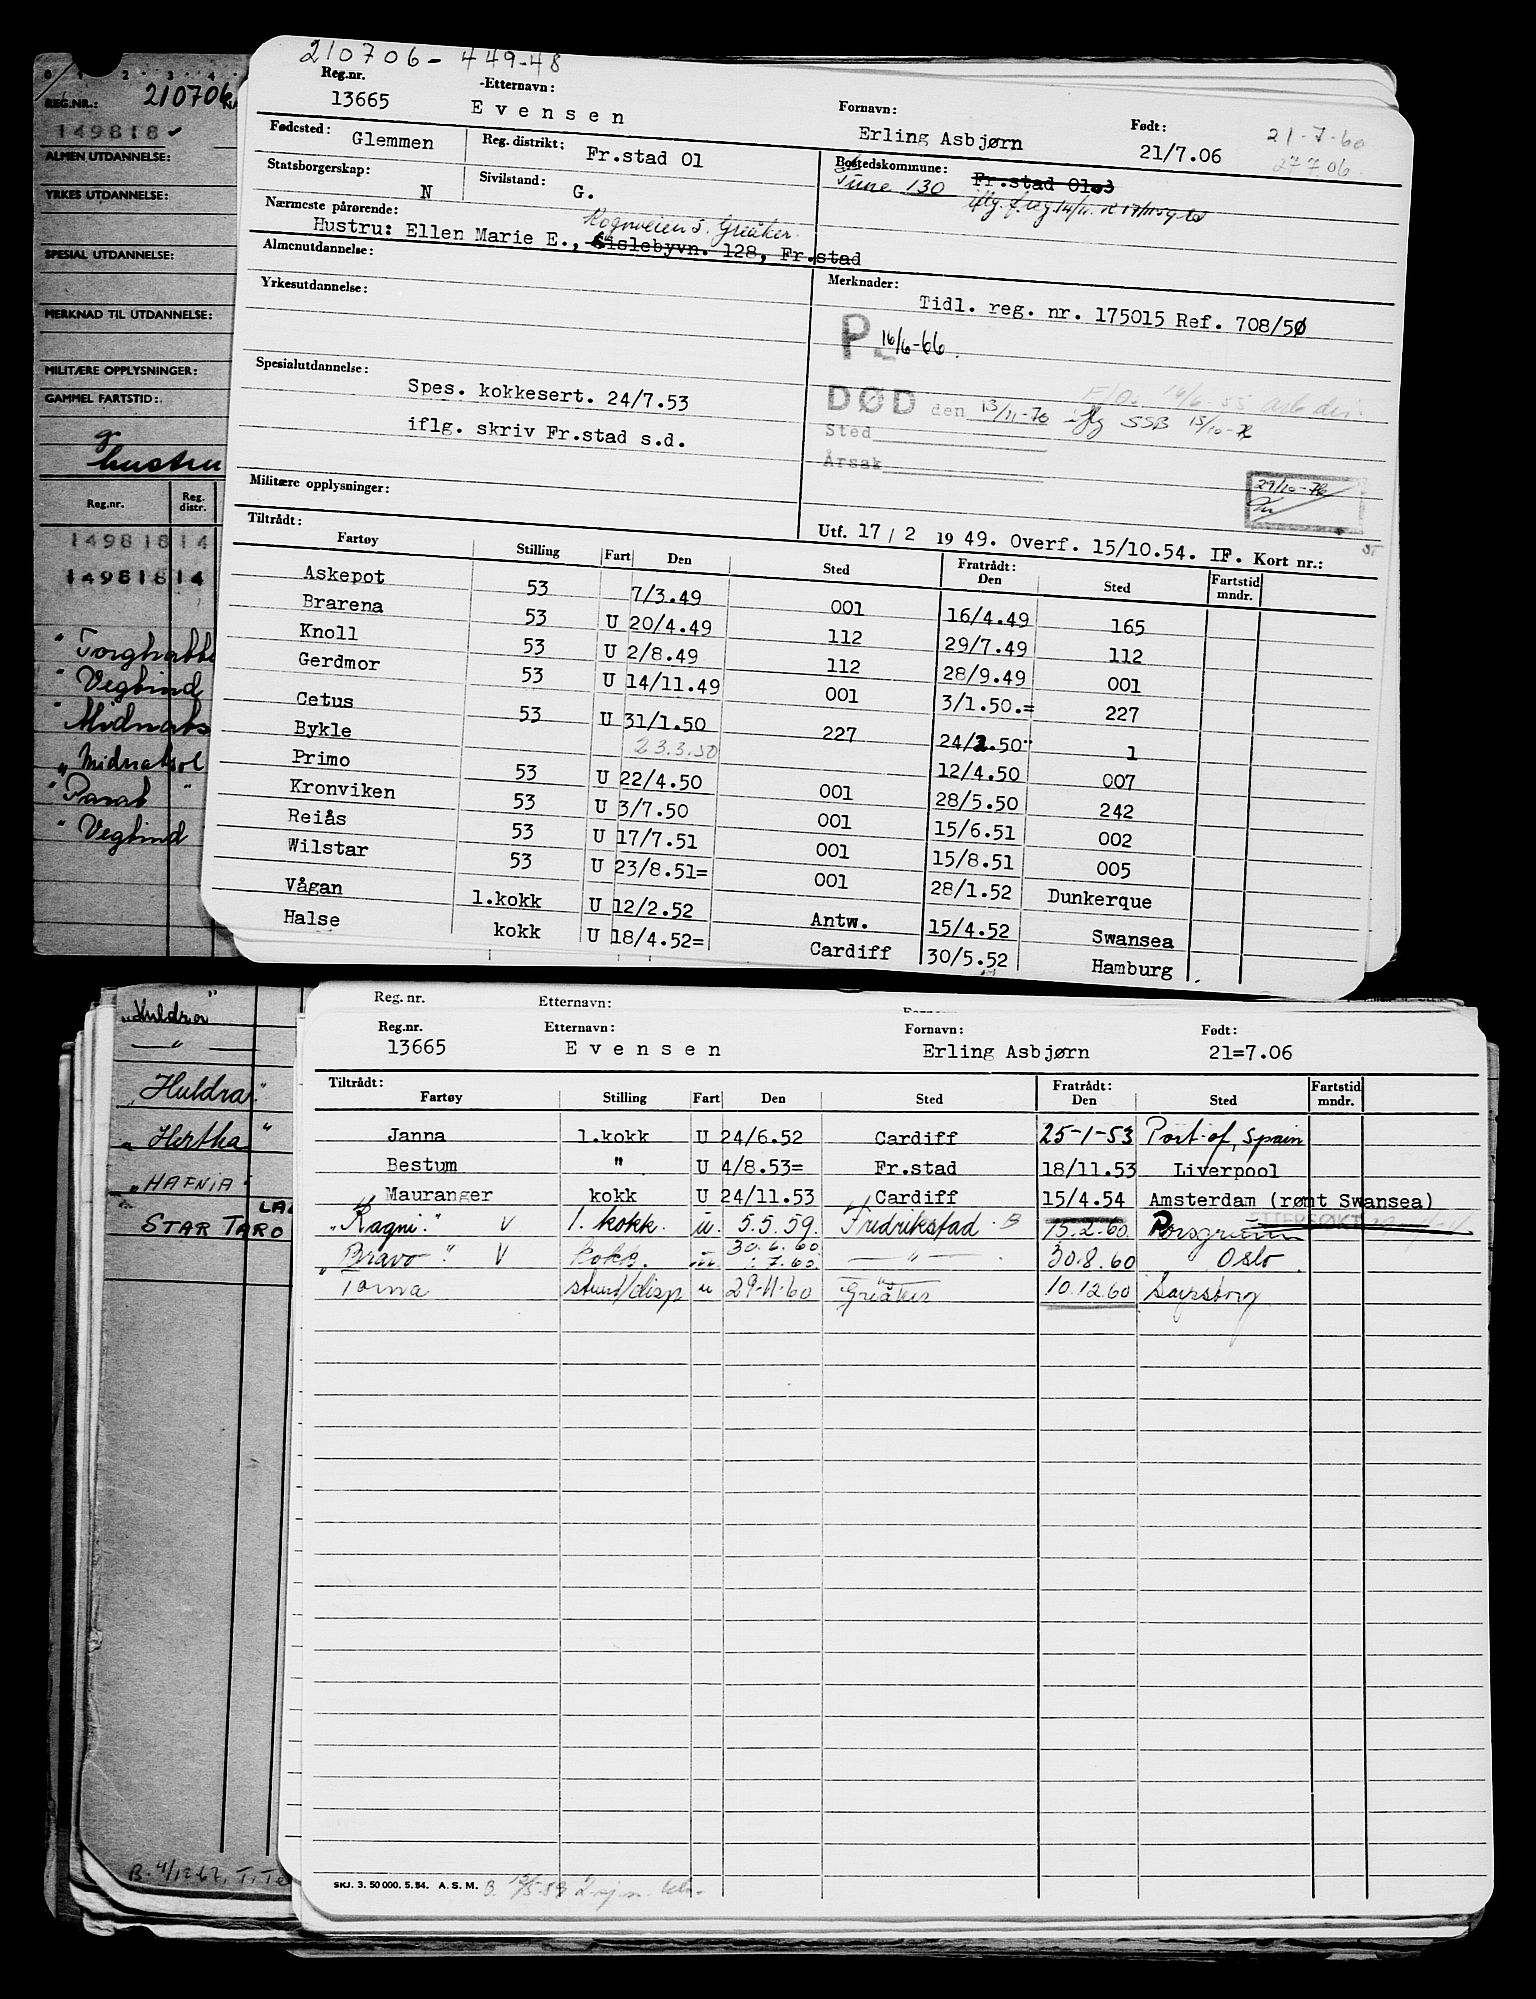 210706-449-48
Reg.nr. Etternavn: Fornavn: Født:
13665 Evensen Erling Asbjørn 21/7.06
21-7-60
27 7 06
Fødested: Glemmen Reg. distrikt: Fr.stad 01 Bostedskommune: Fr.stad 01
Tune 130
Statsborgerskap: N Sivilstand: G.
Nærmeste pårørende: Rognveien 5. Greåker.
Hustru: Ellen Marie E., Gislebyvn. 128, Fr.stad
Almenutdannelse:
Yrkesutdannelse:
Merknader: Tidl. reg. nr. 175015 Ref. 708/50
P 16/6-66.
Spesialutdannelse: Spes. kokkesert. 24/7.53
iflg. skriv Fr.stad s.d.
DØD den 13/11-76 iflg SSB 15/10-76
Sted
Årsak
29/10-76
Militære opplysninger:
Utf. 17/2 1949. Overf. 15/10.54. IF. Kort nr.:
Tiltrådt: Fratrådt:
Fartøy Stilling Fart Den Sted Den Sted Fartstid mndr.
Askepot 53 7/3.49 001 16/4.49 165
Brarena 53 U 20/4.49 112 29/7.49 112
Knoll 53 U 2/8.49 112 28/9.49 001
Gerdmor 53 U 14/11.49 001 3/1.50.= 227
Cetus 53 U 31/1.50 227 24/2.50 1
Bykle 23.3.50 12/4.50 007
Primo 53 U 22/4.50 001 28/5.50 242
Kronviken 53 U 3/7.50 001 15/6.51 002
Reiås 53 U 17/7.51 001 15/8.51 005
Wilstar 53 U 23/8.51= 001 28/1.52 Dunkerque
Vågan 1.kokk U 12/2.52 Antw. 15/4.52 Swansea
Halse kokk U 18/4.52= Cardiff 30/5.52 Hamburg
0 1 2 3 4
REG.NR.: 210706 NA
149818
ALMEN UTDANNELSE:
YRKES UTDANNELSE:
SPESIAL UTDANNELSE:
MERKNAD TIL UTDANNELSE:
MILITÆRE OPPLYSNINGER:
GAMMEL FARTSTID:
g
hustru
Reg.nr. Reg. distr.
149818 14
149818 14
"Vegtind
"Midnats
"Midnatsol
"Vegtind
Reg. nr. Etternavn:
Reg.nr. Etternavn: Fornavn: Født:
13665 Evensen Erling Asbjørn 21=7.06
Tiltrådt: Fratrådt:
Fartøy Stilling Fart Den Sted Den Sted Fartstid mndr.
Janna 1.kokk U 24/6.52 Cardiff 25-1-53 Port of Spain
Bestum " U 4/8.53= Fr.stad 18/11.53 Liverpool
Mauranger kokk U 24/11.53 Cardiff 15/4.54 Amsterdam (rømt Swansea)
"Ragni." V 1. kokk. u. 5.5.59. Fredrikstad. B 15.2.60 Porsgrunn
ETTERSØKT
"Bravo." V kokk. u. 30.6.60 1.7.60. — " — 30.8.60 Oslo
Torna stuert/disp u 29-11-60 Greåker 10.12.60 Sarpsborg
SKJ. 3. 50 000. 5. 54. A. S. M.
"Huldra"
— " —
"Huldra"
"Hertha"
"HAFNIA"
STAR TARO